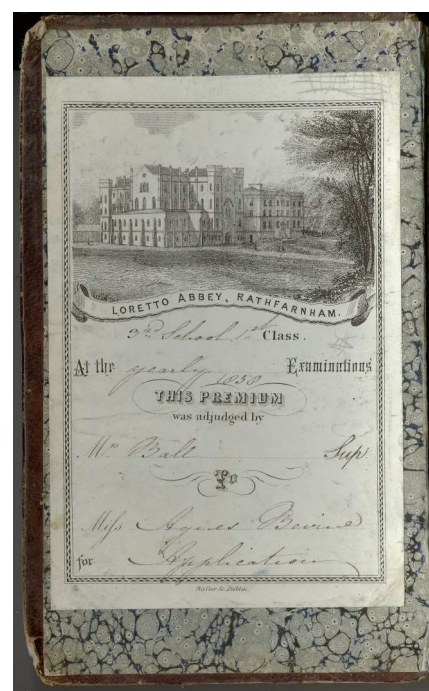 LORETTO ABBEY, RATHFARNHAM.
3rd School 1st Class.
At the yearly Examinations
1858
THIS PREMIUM
was adjudged by
Mrs Ball Sup
To
Miss Agnes Devine
for Application